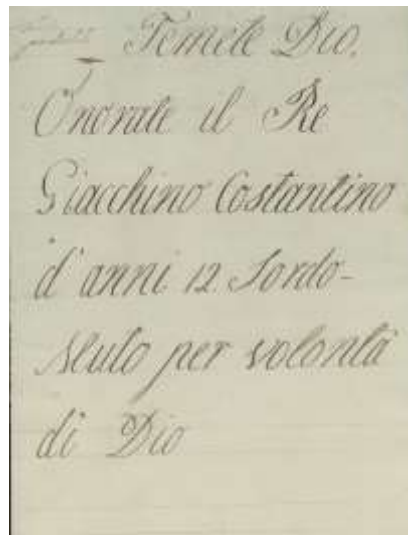 Temete Dio.
Onorate il Re
Giacchino Costantino
d'anni 12. Sordo-
Muto per volontà
di Dio